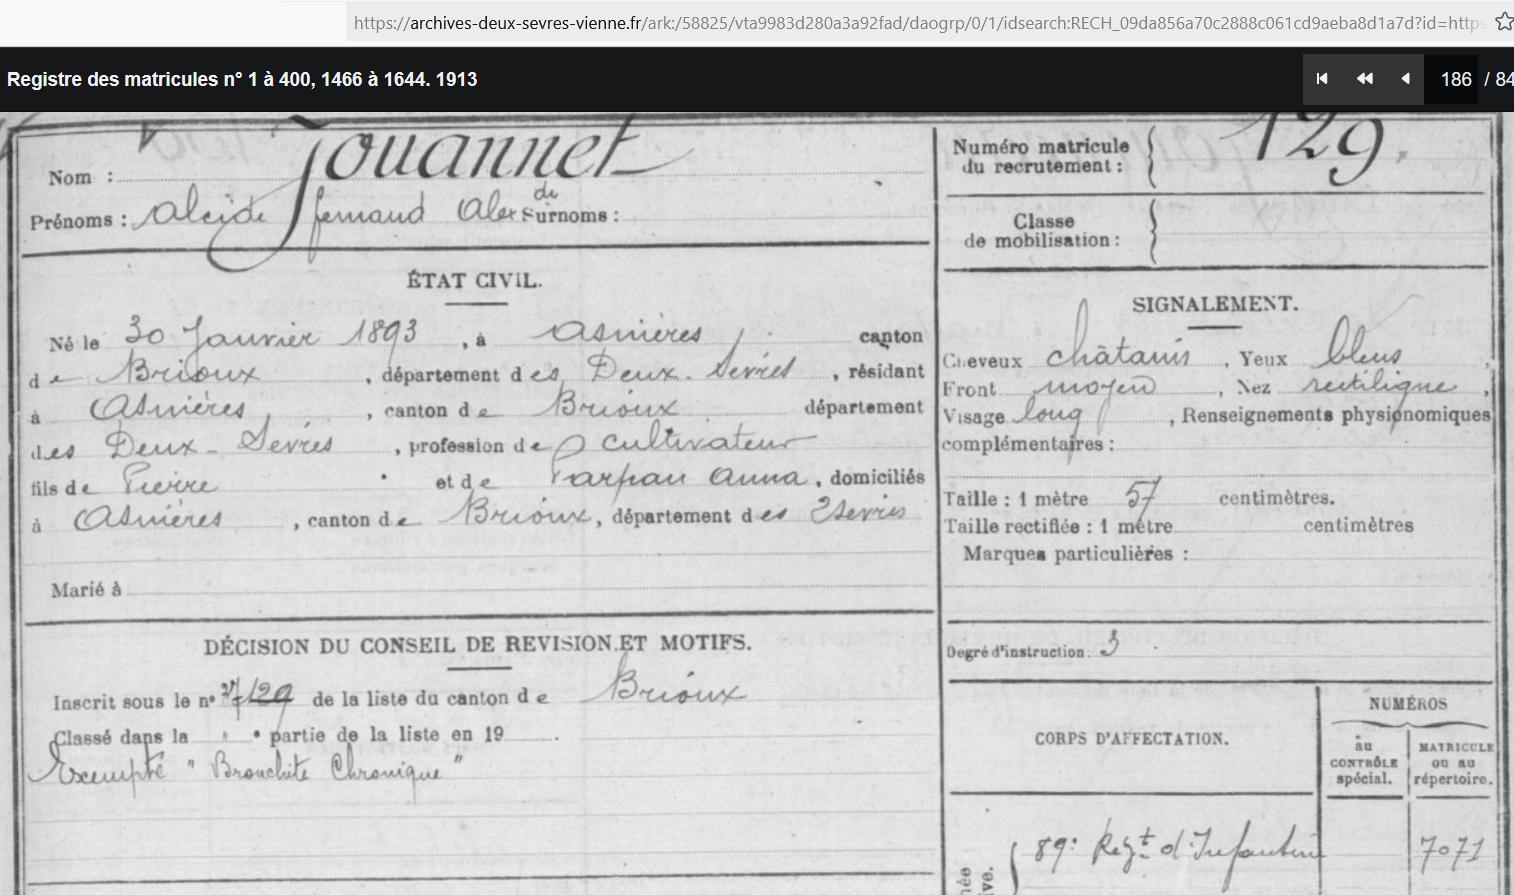 https://archives-deux-sevres-vienne.fr/ark:/58825/vta9983d280a3a92fad/daogrp/0/1/idsearch:RECH_09da856a70c2888c061cd9aeba8d1a7d?id=https
Registre des matricules n° 1 à 400, 1466 à 1644. 1913
186 / 84
Nom : Jouannet
Prénoms : Alcide Fernand Alex Surnoms :
Numéro matricule du recrutement : 129.
Classe de mobilisation :
ÉTAT CIVIL.
Né le 30 Janvier 1893, à Asnières canton
de Brioux, département des Deux-Sèvres, résidant
à Asnières, canton de Brioux département
des Deux-Sèvres, profession de cultivateur
fils de Pierre et de Parpau Anna, domiciliés
à Asnières, canton de Brioux, département des 2 Sevres
Marié à
SIGNALEMENT.
Cheveux châtains, Yeux bleus,
Front moyen, Nez rectiligne,
Visage long, Renseignements physionomiques
complémentaires :
Taille : 1 mètre 57 centimètres.
Taille rectifiée : 1 mètre centimètres
Marques particulières :
Degré d'instruction : 3
DÉCISION DU CONSEIL DE REVISION ET MOTIFS.
Inscrit sous le n° 37 129 de la liste du canton de Brioux
Classé dans la " " partie de la liste en 19 .
Exempté " Bronchite Chronique "
CORPS D'AFFECTATION.
NUMÉROS
au CONTRÔLE spécial.
MATRICULE ou au répertoire.
89e Regt d'Infanterie 7071